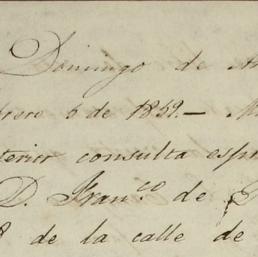 Domingo de
brero 6 de 1859.-
terior consulta
D. Fran.co de
8 de la calle de